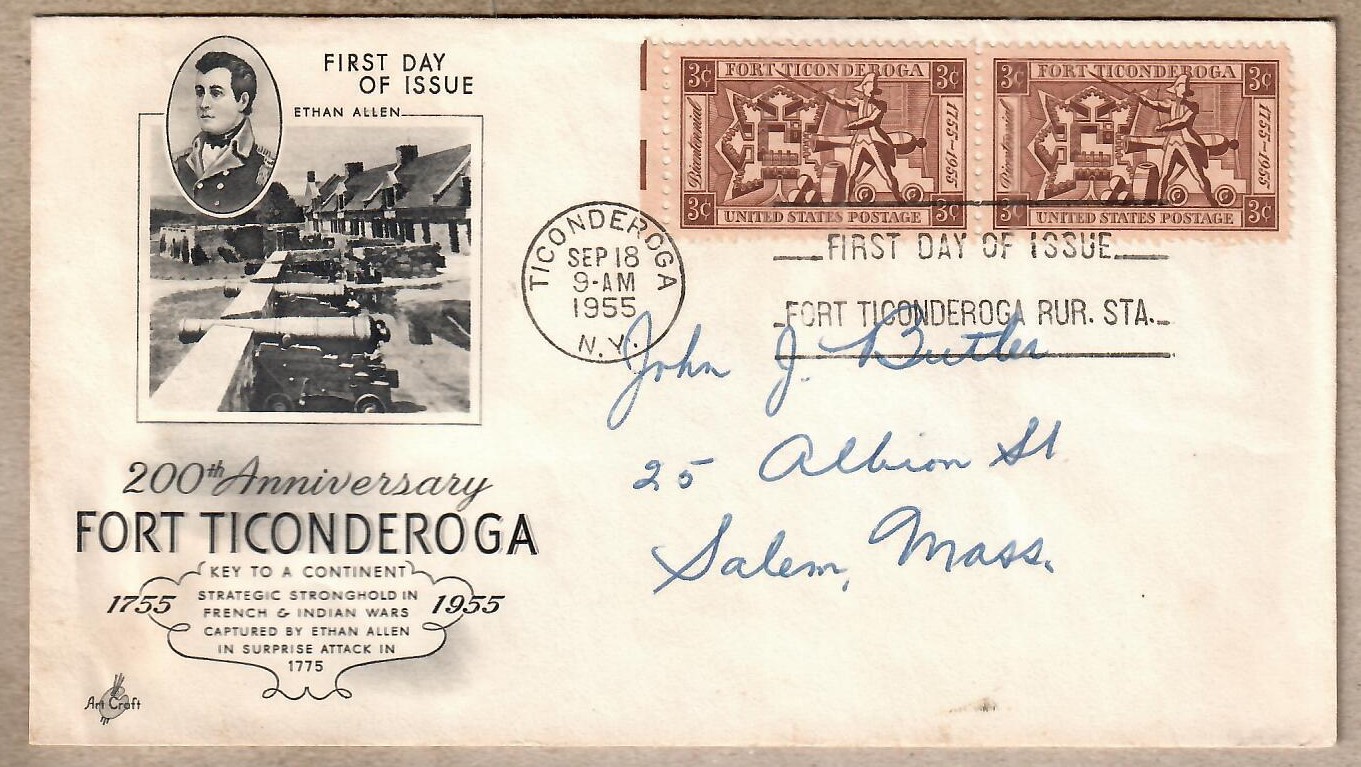 FIRST DAY
OF ISSUE
ETHAN ALLEN
3¢ FORT TICONDEROGA 3¢
Bicentennial
1755-1955
3¢ UNITED STATES POSTAGE 3¢
3¢ FORT TICONDEROGA 3¢
Bicentennial
1755-1955
3¢ UNITED STATES POSTAGE 3¢
TICONDEROGA
SEP 18
9-AM
1955
N.Y.
FIRST DAY OF ISSUE
FORT TICONDEROGA RUR. STA.
John J. Butler
25 Albion St
Salem, Mass.
200th Anniversary
FORT TICONDEROGA
KEY TO A CONTINENT
1755 1955
STRATEGIC STRONGHOLD IN
FRENCH & INDIAN WARS
CAPTURED BY ETHAN ALLEN
IN SURPRISE ATTACK IN
1775
Art Craft